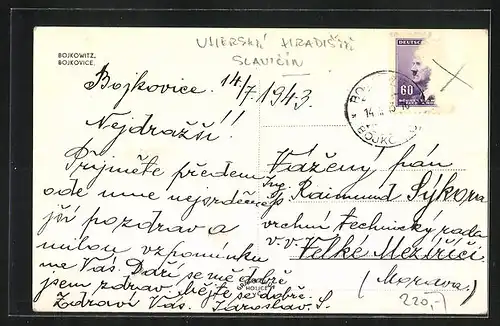 UHERSKÉ HRADIŠTĚ
SLAVIČÍN
BOJKOWITZ.
BOJKOVICE.
DEUTSCH
60
Bojkovice. 14/7. 1943.
Nejdražší!!
Přijměte předem
ode mne nejsrdečněj
ší pozdrav a
milou vzpomínku
na Vás. Daří se mě dobře
jsem zdráv. Mějte se dobře.
Zdraví Vás. Jaroslav. S.
Vážený pán
Ing. Raimund Sýkora
vrchní technický rada
v. v.
Velké Meziříčí
(Morava)
HOLICE
220,-